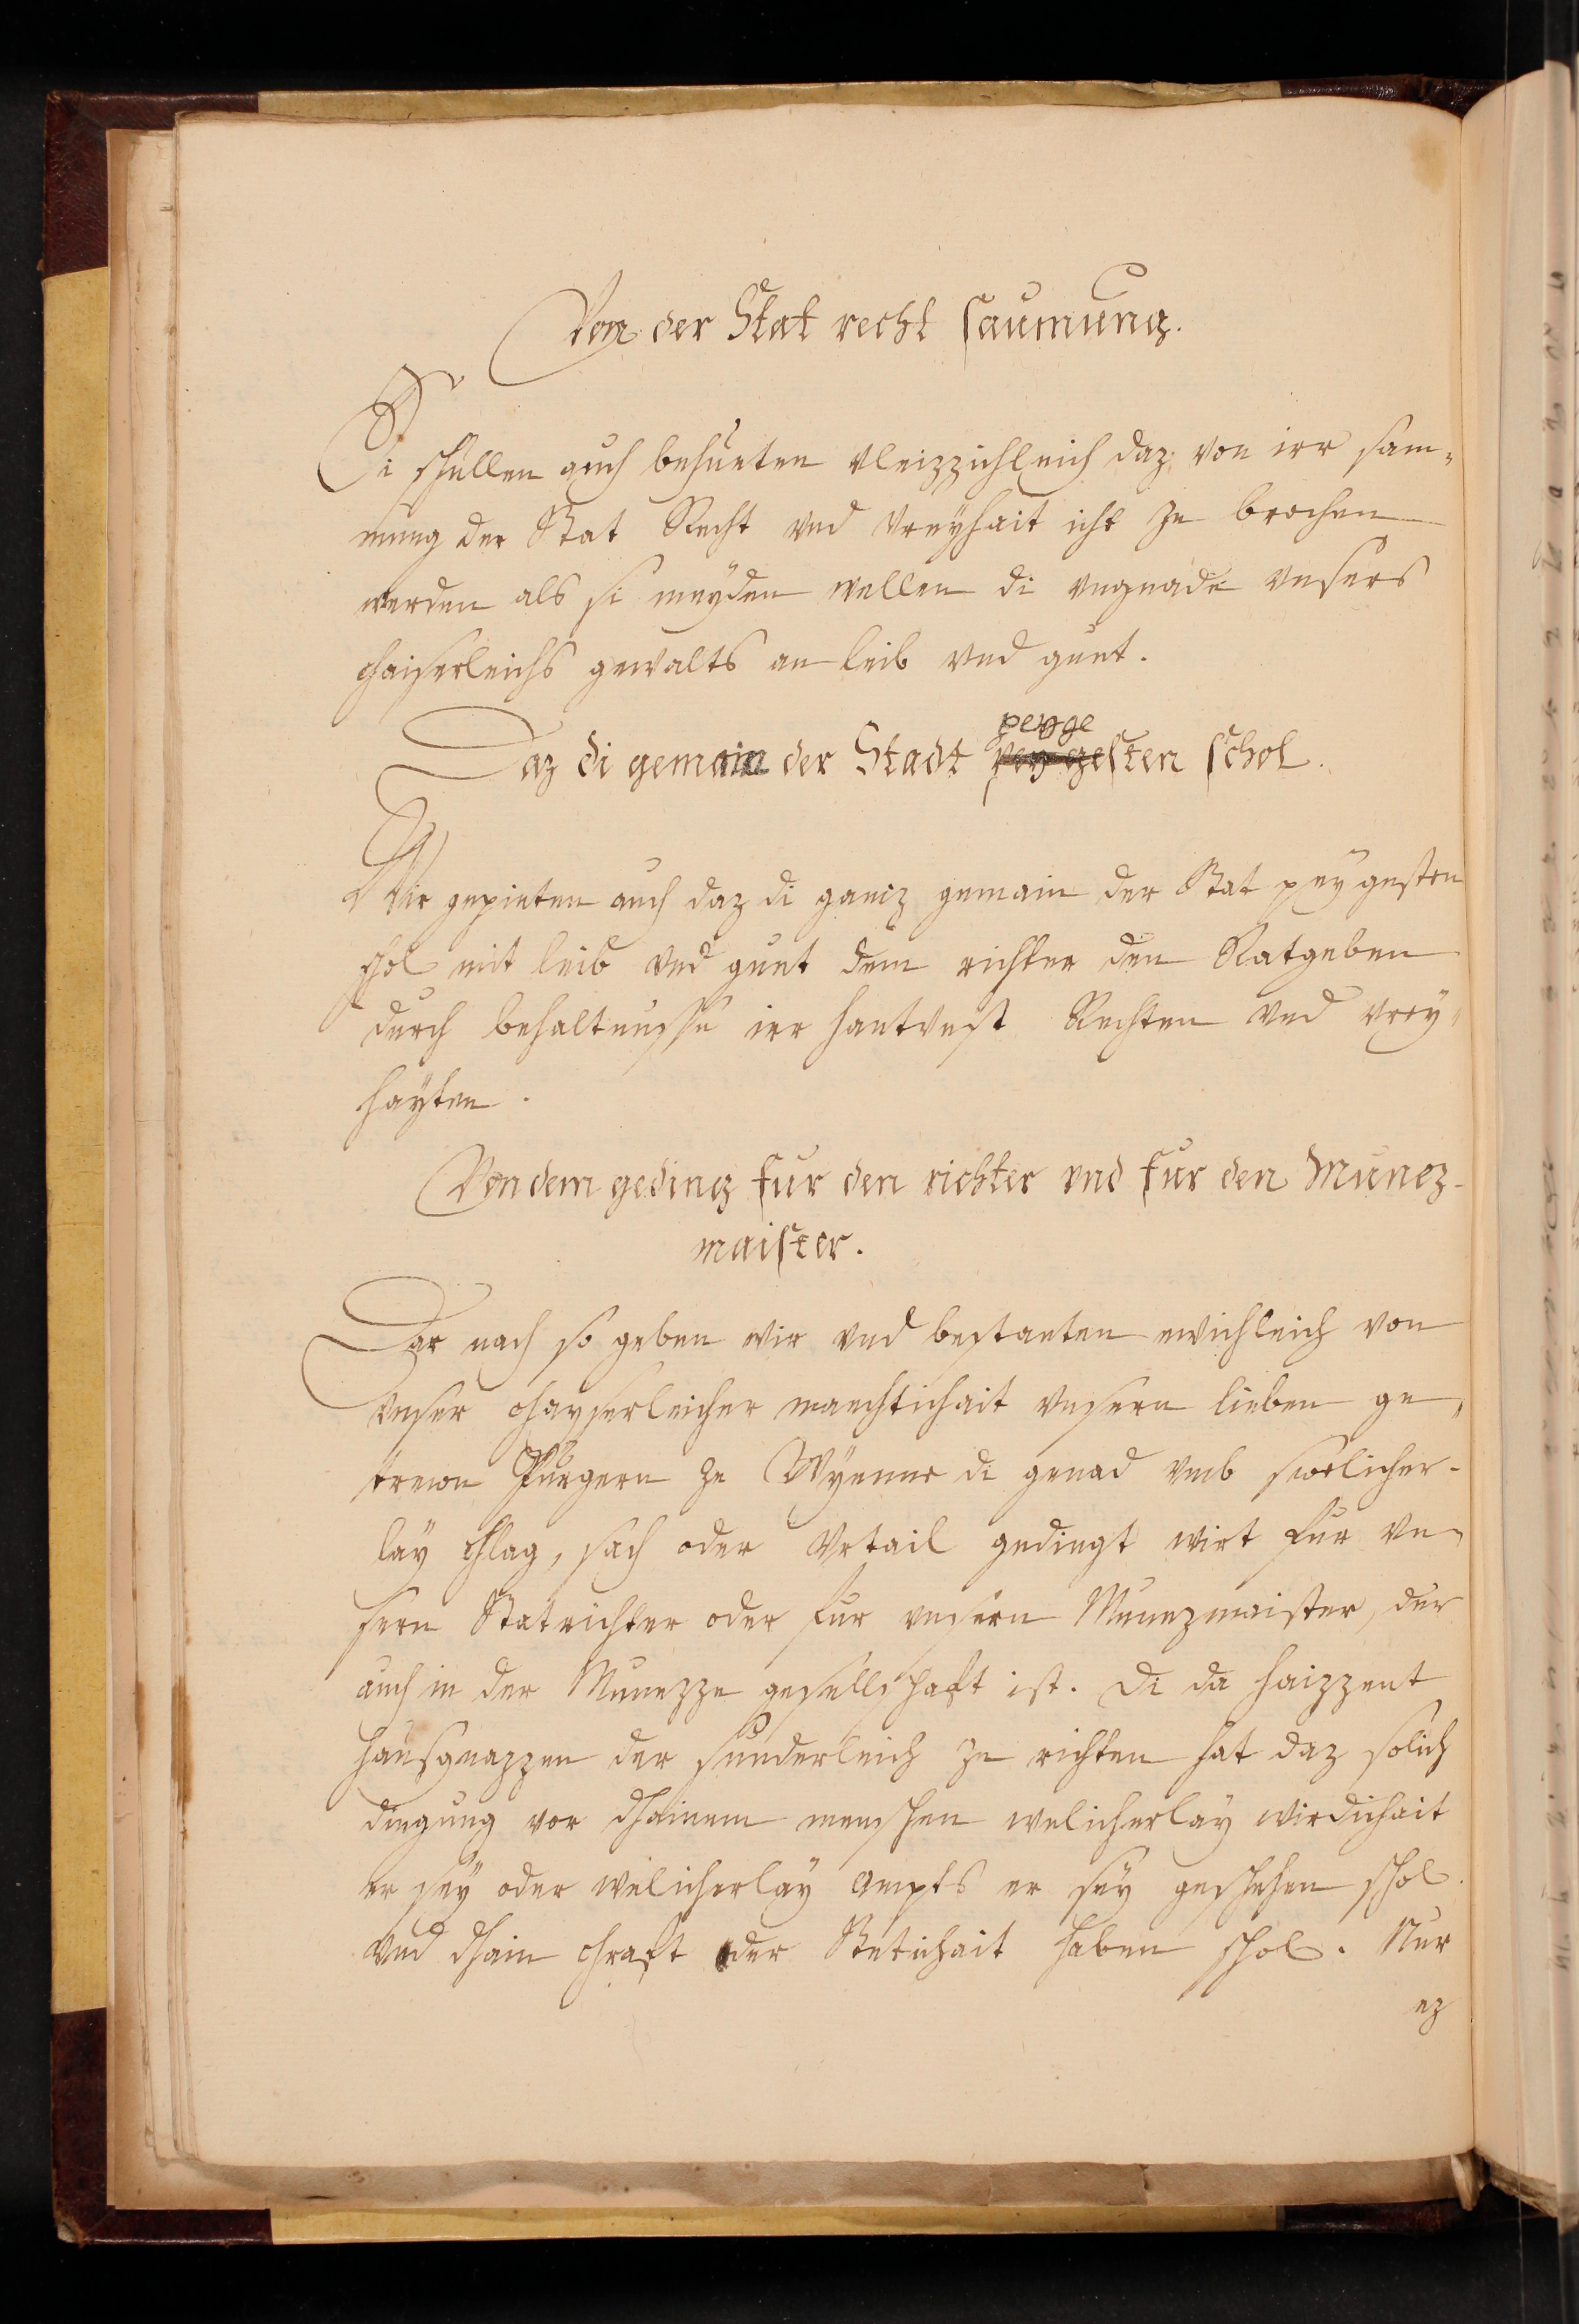 Von der Stat recht saumung.
Si schullen auch behueten vleizzichleich daz von irr sam=
nung der Stat Recht vnd vreyhait icht ze brochen
werden als si meyden wellen di vngnade vnsers
chaiserleichs gewalts an leib vnd guet.
peyge
Daz di gemain der Stadt sten schol.
Wir gepieten auch daz di gancz gemain der Stat pey gesten
schol mit leib vnd guet dem richter den Ratgeben
durch behaltnusse irr hantvest Rechten vnd vrey=
hayten.
Von dem geding fur den richter vnd fur den Muncz-
maister.
Dar nach so geben wir vnd bestaeten ewichleich von
vnser chayserleicher maechtichait vnsern lieben ge=
trewn Purgern ze Wyenne di genad vmb swelicher-
lay chlag, sach oder Vrtail gedingt wirt fur vn=
sern Statrichter oder fur vnsern Munczmaister, der
auch in der Munczze gesellschaft ist. di da haizzent
hausgnazzen der sunderleich ze richten hat daz solich
dingung vor dhainem menschen welicherlay wirdichait
er sey oder welicherlay ampts er sey geschehen schol.
vnd dhain chraft oder Stetichait haben schol. Nur
ez